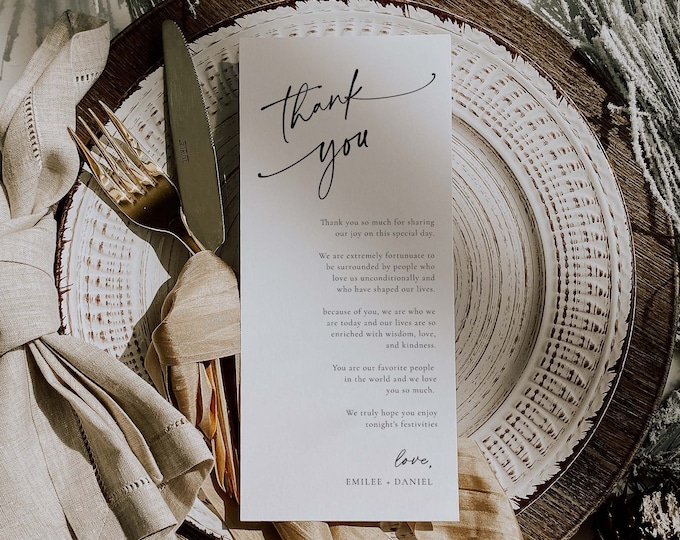 thank
you
Thank you so much for sharing
our joy on this special day.
We are extremely fortunate to
be surrounded by people who
love us unconditionally and
who have shaped our lives.
because of you, we are who we
are today and our lives are so
enriched with wisdom, love,
and kindness.
You are our favorite people
in the world and we love
you so much.
We truly hope you enjoy
tonight's festivities
love,
EMILEE + DANIEL